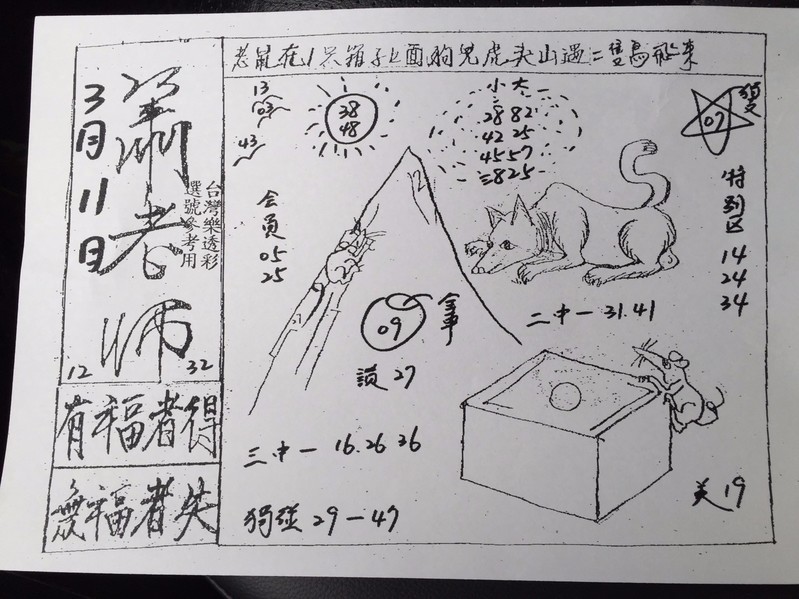 老鼠在1只箱子上面狗兒虎头山過二隻鳥飛来
3月11日
蕭老师
台灣樂透彩
選號參考用
12
32
有福者得
無福者失
13
03
43
38
48
小 大
28 82
42 25
45 57
三825
07
特别区
14
24
34
会員
05
25
12
09
二中一 31.41
27
三中一 16.26 36
29—47
19